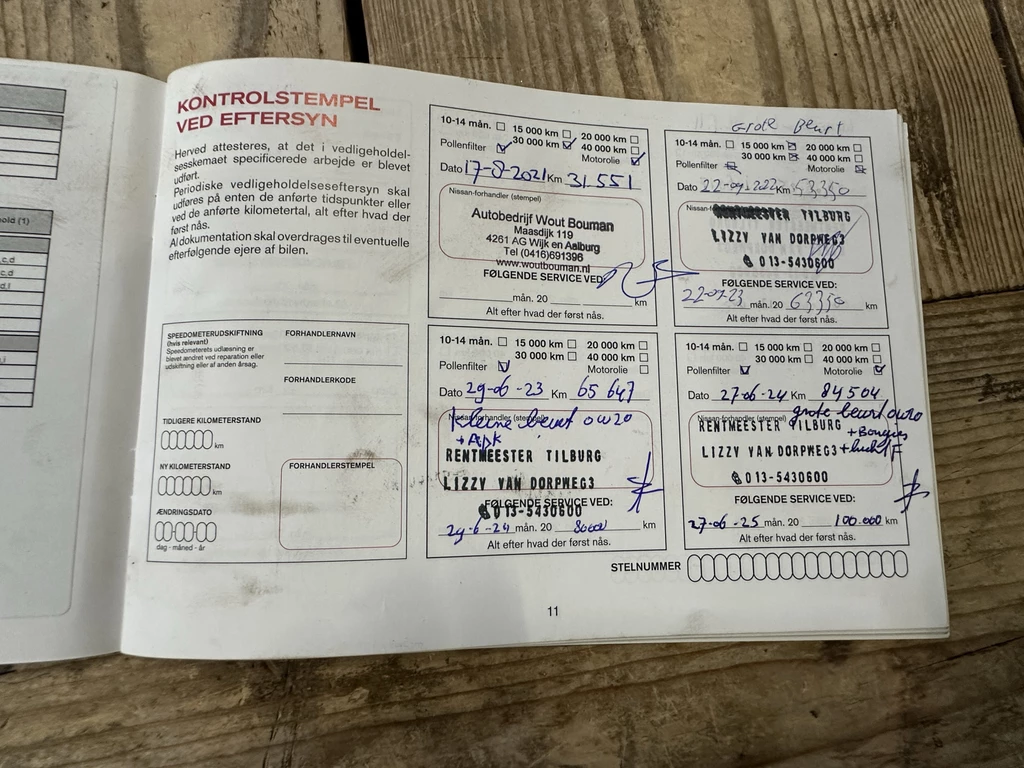 hold (1)
c,d
c,d
d,l
KONTROLSTEMPEL
VED EFTERSYN
Herved attesteres, at det i vedligeholdel-
sesskemaet specificerede arbejde er blevet
udført.
Periodiske vedligeholdelseseftersyn skal
udføres på enten de anførte tidspunkter eller
ved de anførte kilometertal, alt efter hvad der
først nås.
Al dokumentation skal overdrages til eventuelle
efterfølgende ejere af bilen.
SPEEDOMETERUDSKIFTNING
(hvis relevant)
Speedometerets udlæsning er
blevet ændret ved reparation eller
udskiftning eller af anden årsag.
FORHANDLERNAVN
FORHANDLERKODE
TIDLIGERE KILOMETERSTAND
km
NY KILOMETERSTAND
km
ÆNDRINGSDATO
dag - måned - år
FORHANDLERSTEMPEL
10-14 mån. 15 000 km 20 000 km
30 000 km 40 000 km
Pollenfilter Motorolie
Dato 17-8-2021 Km 31.551
Nissan-forhandler (stempel)
Autobedrijf Wout Bouman
Maasdijk 119
4261 AG Wijk en Aalburg
Tel (0416)691396
www.woutbouman.nl
FØLGENDE SERVICE VED:
mån. 20 km
Alt efter hvad der først nås.
Grote Beurt
10-14 mån. 15 000 km 20 000 km
30 000 km 40 000 km
Pollenfilter Motorolie
Dato 22-09-2022 Km 53350
RENTMEESTER TILBURG
LIZZY VAN DORPWEG3
013-5430600
FØLGENDE SERVICE VED:
22-0 23 mån. 20 63350 km
Alt efter hvad der først nås.
10-14 mån. 15 000 km 20 000 km
30 000 km 40 000 km
Pollenfilter Motorolie
Dato 29-06-23 Km 65 647
Nissan-forhandler (stempel)
kleine beurt 0w20
+ APK
RENTMEESTER TILBURG
LIZZY VAN DORPWEG3
FØLGENDE SERVICE VED:
013-5430600
29-6-24 mån. 20 80000 km
Alt efter hvad der først nås.
10-14 mån. 15 000 km 20 000 km
30 000 km 40 000 km
Pollenfilter Motorolie
Dato 27-06-24 Km 84504
Nissan-forhandler (stempel)
grote beurt 0w20
RENTMEESTER TILBURG
+ Bougies
LIZZY VAN DORPWEG3 + lucht F
013-5430600
FØLGENDE SERVICE VED:
27-06-25 mån. 20 100.000 km
Alt efter hvad der først nås.
STELNUMMER
11